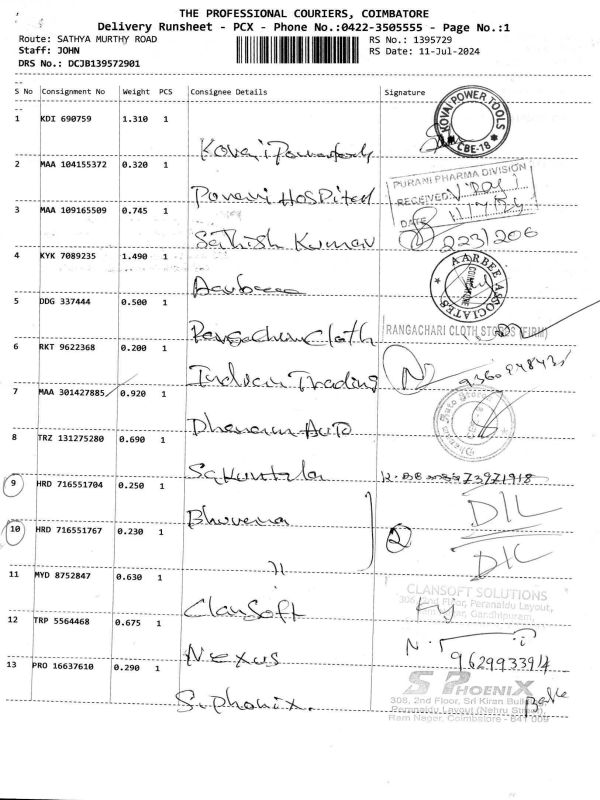 THE PROFESSIONAL COURIERS, COIMBATORE
Delivery Runsheet - PCX - Phone No.:0422-3505555 - Page No.:1
Route: SATHYA MURTHY ROAD RS No.: 1395729
Staff: JOHN RS Date: 11-Jul-2024
DRS No.: DCJB139572901
S No Consignment No Weight PCS Consignee Details Signature
1 KDI 690759 1.310 1
KOVAI POWER TOOLS
CBE-18
Kovai Powertools
2 MAA 104155372 0.320 1
PURANI PHARMA DIVISION
RECEIVED
DATE
Purani Hospital
3 MAA 109165509 0.745 1
Sathish Kumar 223/206
4 KYK 7089235 1.490 1
AARBEE ASSOCIATES
COIMBATORE
5 DDG 337444 0.500 1
RANGACHARI CLOTH STORES (FIRM)
Rangachari Cloth
6 RKT 9622368 0.200 1
Indian Trading
7 MAA 301427885 0.920 1
Auto
8 TRZ 131275280 0.690 1
Sakuntala 73971918
9 HRD 716551704 0.250 1
Bhuvana DIL
10 HRD 716551767 0.230 1
2 DIL
11 11
MYD 8752847 0.630 1
CLANSOFT SOLUTIONS
306, 2nd Floor, Peranaidu Layout,
Gandhipuram,
Clansoft
12 TRP 5564468 0.675 1
Nexus 9629933914
13 PRO 16637610 0.290 1
S PHOENIX
308, 2nd Floor, Sri Kiran
Peranaidu Layout (Nehru Street),
Ram Nagar, Coimbatore - 641 009
S. phonix.